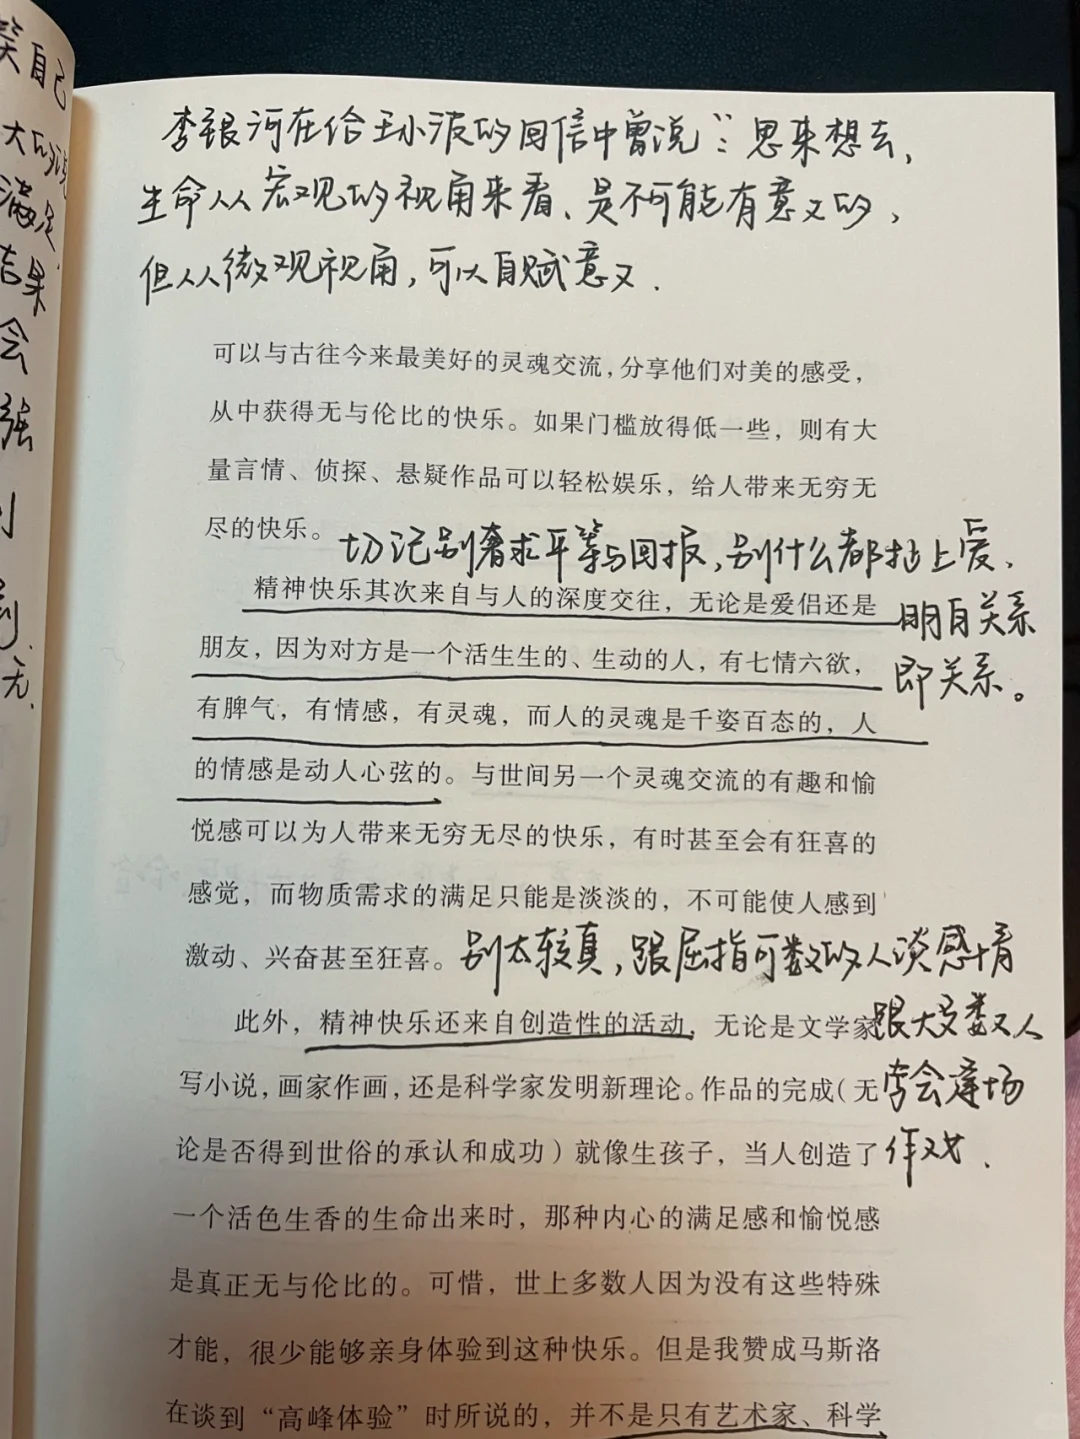 笑自己
大的说
满足
结果
会
强
到
无.
李银河在给王小波的回信中曾说":思来想去,
生命从宏观的视角来看、是不可能有意义的,
但从微观视角,可以自赋意义.
可以与古往今来最美好的灵魂交流,分享他们对美的感受,
从中获得无与伦比的快乐。如果门槛放得低一些，则有大
量言情、侦探、悬疑作品可以轻松娱乐，给人带来无穷无
尽的快乐。
切记别奢求平等与回报,别什么都扯上爱.
明白关系
即关系。
精神快乐其次来自与人的深度交往，无论是爱侣还是
朋友，因为对方是一个活生生的、生动的人，有七情六欲，
有脾气，有情感，有灵魂，而人的灵魂是千姿百态的，人
的情感是动人心弦的。与世间另一个灵魂交流的有趣和愉
悦感可以为人带来无穷无尽的快乐，有时甚至会有狂喜的
感觉，而物质需求的满足只能是淡淡的，不可能使人感到
激动、兴奋甚至狂喜。
别太较真,跟屈指可数的人谈感情
跟大多数人
学会逢场
作戏.
此外，精神快乐还来自创造性的活动，无论是文学家
写小说，画家作画，还是科学家发明新理论。作品的完成（无
论是否得到世俗的承认和成功）就像生孩子，当人创造了
一个活色生香的生命出来时，那种内心的满足感和愉悦感
是真正无与伦比的。可惜，世上多数人因为没有这些特殊
才能，很少能够亲身体验到这种快乐。但是我赞成马斯洛
在谈到“高峰体验”时所说的，并不是只有艺术家、科学